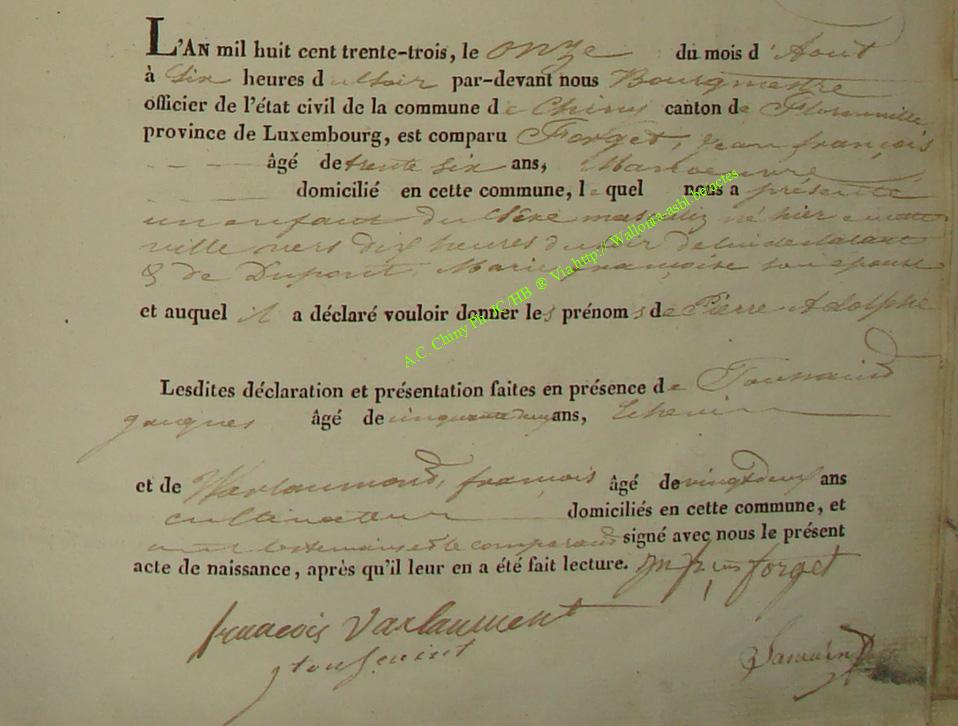 L'AN mil huit cent trente-trois, le onze du mois d'Aout
à Six heures du Soir par-devant nous Bourgmestre
officier de l'état civil de la commune de Chiny canton de Florenville,
province de Luxembourg, est comparu Forget, Jean françois
âgé de trente six ans, Manoeuvre
domicilié en cette commune, lequel nous a présenté
un enfant du Sexe masculin né hier en cette
ville vers dix heures du soir de lui déclarant
& de Dupont, Marie françoise son épouse
et auquel il a déclaré vouloir donner les prénoms de Pierre Adolphe
Lesdites déclaration et présentation faites en présence de Toussaind
jacques âgé de cinquante deux ans, Echevin
et de Warlaumond, françois âgé de vingt deux ans
cultivateur domiciliés en cette commune, et
les temoins et le comparand signé avec nous le présent
acte de naissance, après qu'il leur en a été fait lecture. forget
francois Varlaumont
j tousaint
A.C. Chiny Ph JC/HB ® Via http://Wallonia-asbl.be/actes